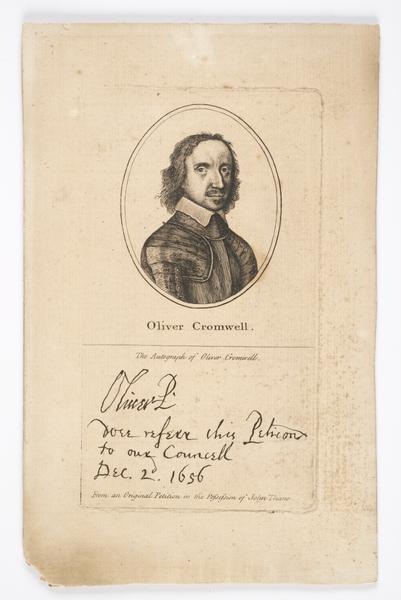 Oliver Cromwell.
The Autograph of Oliver Cromwell.
Oliver P.
Wee referr this Peticon
to our Councell
Dec. 2d. 1656
From an Original Petition in the Possession of John Thane